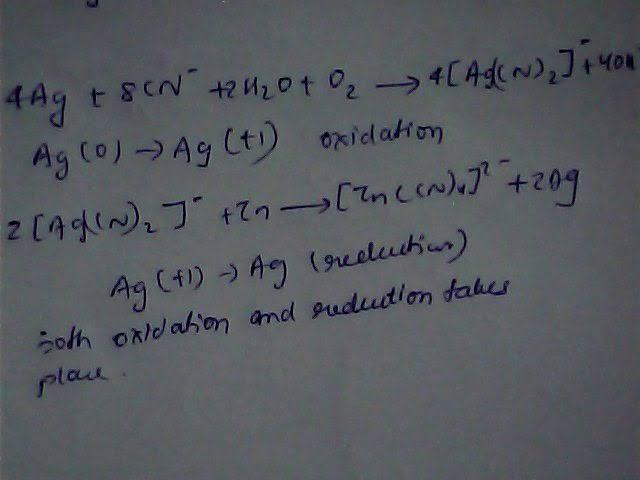 4Ag + 8CN⁻ + 2H₂O + O₂ → 4[Ag(CN)₂]⁻ + 4OH
Ag(0) → Ag(+1) oxidation
2[Ag(CN)₂]⁻ + Zn → [Zn(CN)₄]²⁻ + 2Ag
Ag(+1) → Ag (reduction)
Both oxidation and reduction takes
place.